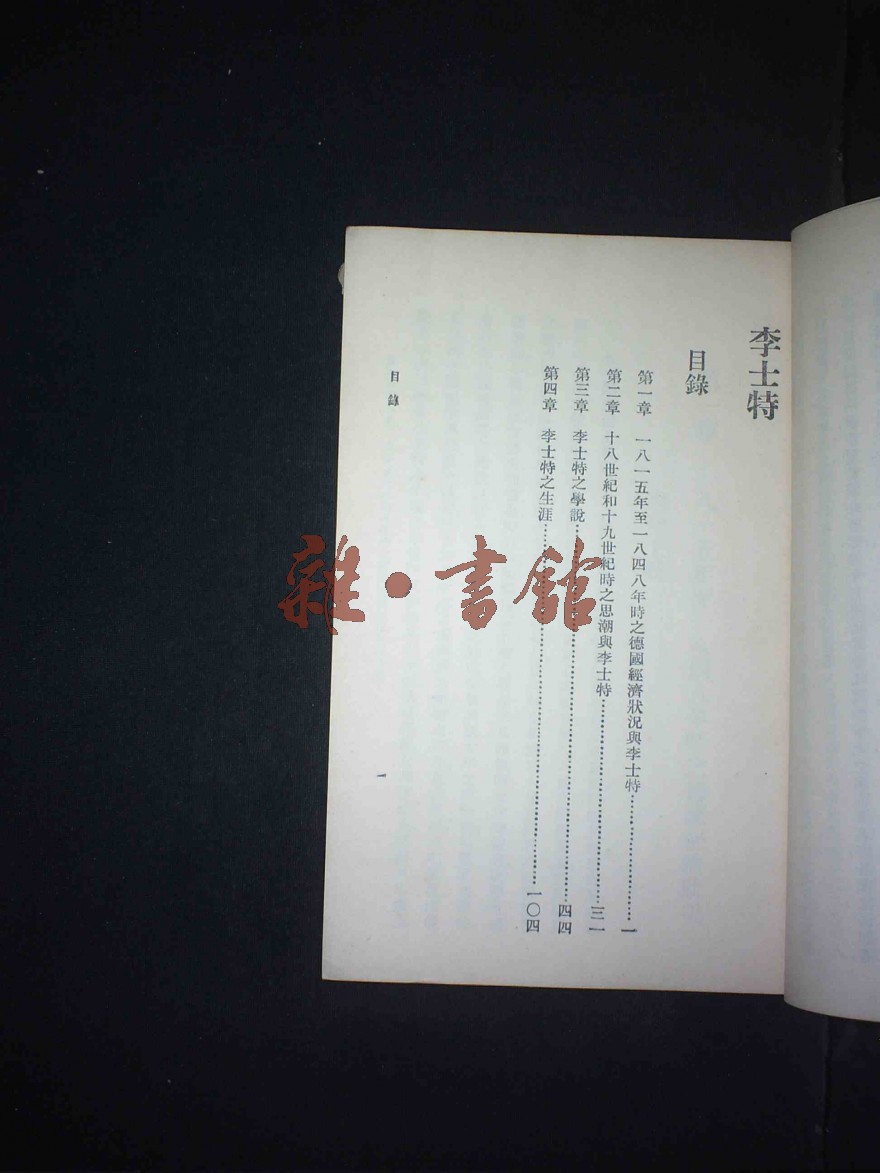 李士特
目錄
第一章　一八一五年至一八四八年時之德國經濟狀況與李士特……一
第二章　十八世紀和十九世紀時之思潮與李士特……三一
第三章　李士特之學說……四四
第四章　李士特之生涯……一〇四
目錄
一
雜·書館